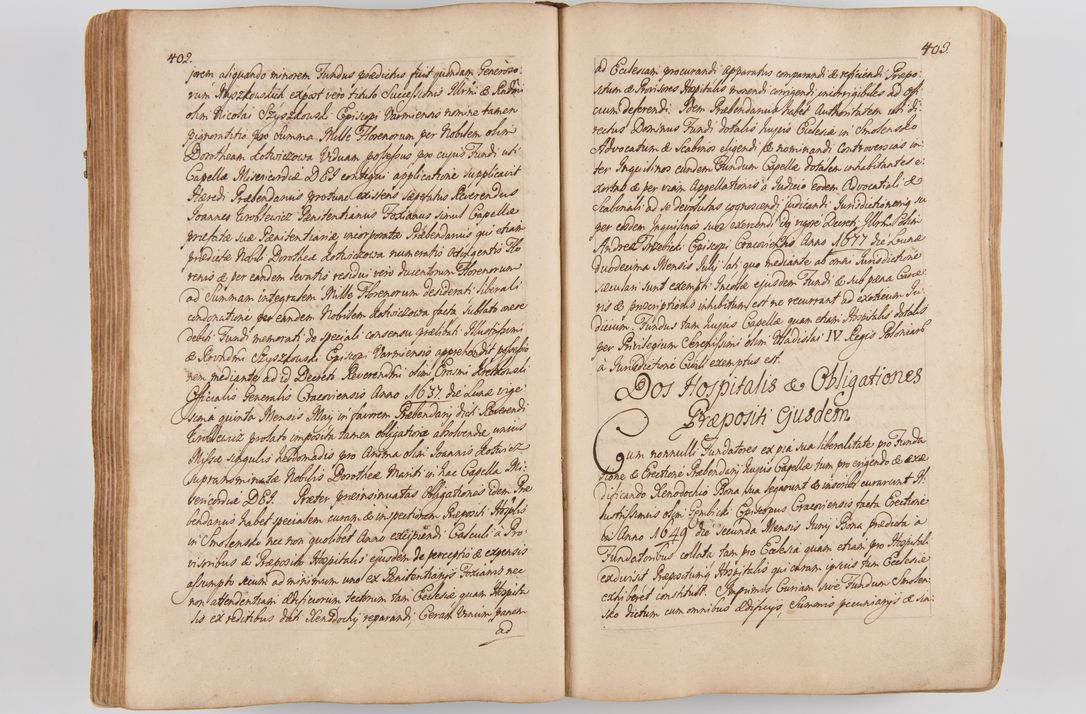 402.
jorem aliquando minorem Fundus prædictus fuit quondam Generoso-
rum Myszkowskich ex post vero titulo Successionis Illrmi & Rndmi
olim Nicolai Szyszkowski Episcopi Varmiensis nomine tamen
pignoratitio pro Summa Mille Florenorum per Nobilem olim
Dorotheam Lotwiczowa Viduam possessus pro cujus Fundi uti
Capellæ Misericordiæ DEI contigui applicatione supplicavit
Hæredi Præbendarius protunc existens sæpetitus Reverendus
Joannes Grotkiewicz Pænitentiarius Foxianus simul Capellæ
prætactæ suæ Pænitentiariæ incorporatæ Præbendarius qui etiam
prædictæ Nobili Dorotheæ Lotwiczowa numeratis Octingentis Flo-
renis & per eandem levatis residui vero ducentorum Florenorum
ad Summam integralem Mille Florenorum desiderati liberali
condonatione per eandem Nobilem Lotwiczowa facta sublato onere
debiti Fundi memorati de speciali consensu prælibati Illustrissimi
& Revndmi Szyszkowski Episcopi Varmiensis apprehendit possessio-
nem mediante ad id Decreto Reverendmi olim Erasmi Kretkowski
Officialis Generalis Cracoviensis Anno 1637. die Lunæ vige-
sima quinta Mensis Maij in favorem Præbendarij dicti Reverendi
prolato imposita tamen obligatione absolvendæ unius
Missæ singulis hebdomadis pro Anima olim Joannis Lotwicz
Supranominatæ Nobilis Dorotheæ Mariti in hac Capella Mi-
sericordiæ DEI. Præter præinsinuatas Obligationes idem Præ-
bendarius habet specialem curam & inspectionem Præpositi Hosplis
in Smolensko nec non quolibet Anno excipiendi Calculi à Pro-
visoribus & Præposito Hospitalis ejusdem de perceptis & expensis
assumpto secum ad minimum uno ex Pænitentiarijs Foxianis nec
non attendentiam ædificiorum tectorum tam Ecclesiæ quam Hospita-
lis ex reditibus dicti Xenodochij reparandi, Ceram Vinum,
ad
403.
ad Ecclesiam procurandi apparatus comparandi & reficiendi Præpo-
situm & Provisores Hospitalis monendi corrigendi incorrigibiles ad Offi-
cium deferendi. Idem Præbendarius habet Authoritatem uti di-
rectus Dominus Fundi dotalis hujus Ecclesiæ in Smolensko
Advocatum & Scabinos eligendi & nominandi Controversias in-
ter Inquilinos eundem Fundum Capellæ dotalem inhabitantes e-
xortas & per viam Appellationis à Judicio eorum Advocatiali &
Scabinali ad se devolutas cognoscendi judicandi Jurisdictionemq su-
per eosdem Inquilinos suos exercendi vigore Decreti Illrmi Celsmi
Andreæ Trzebicki Episcopi Cracoviensis Anno 1677 die Lunæ
duodecima Mensis Julij lati quo mediante ab omni Jurisdictione
sæculari sunt exempti Incolæ ejusdem Fundi & sub pæna Carce-
ris & proscriptionis inhibitum est ne recurrant ad exoticum Ju-
dicium. Fundus tam hujus Capellæ quam etiam Hospitalis dotalis
per Privilegium Serenissimi olim Vladislai IV. Regis Poloniarum
à Jurisdictione Civili exemptus est.
Dos Hospitalis & Obligationes
Præpositi Ejusdem
Cum nonnulli Fundatores ex pia sua liberalitate pro Funda-
tione & Erectione Præbendarij hujus Capellæ tum pro erigendo & exæ-
dificando Xenodochio Bona sua legarunt & inscribi curarunt Il-
lustrissimus olim Gembicki Episcopus Cracoviensis facta Erectione
in Anno 1649 die secunda Mensis Junij Bona prædicta à
Fundatoribus collata tam pro Ecclesia quam etiam pro Hospitali
exdivisit Præpositumq Hospitalis qui curam ipsius tum Ecclesiæ
exhiberet constituit. Inprimis Curiam sive Fundum Smolen-
sko dictum cum omnibus ædificijs, Summis pecuniarijs & sin-